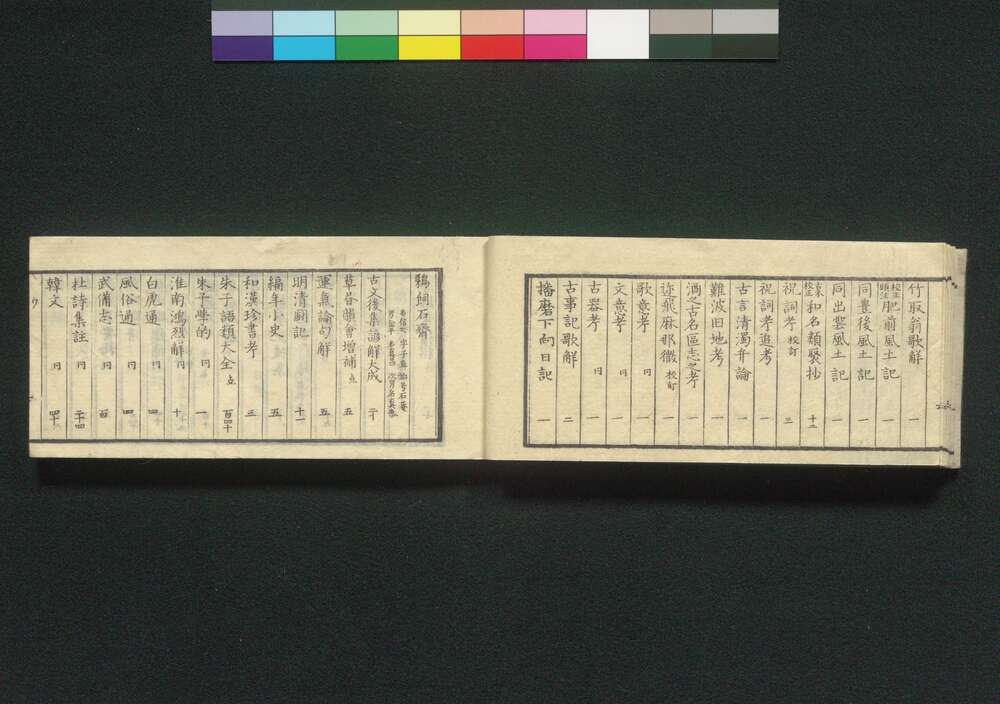 竹取翁歌解 一
校正頭注 肥前風土記 一
同豊後風土記 一
同出雲風土記 一
校正 和名類聚抄 十二
祝詞考 校訂 三
祝詞考追考 一
古言清濁弁論 一
難波旧地考 一
澫之古名區志之考 一
迩飛麻那微 校訂 一
歌意考 同 一
文意考 同 一
古器考 同 一
古事記歌解 二
播磨下向日記 一
鵜飼石齋
古文後集諺解大成 二十
草昔韻會增補 点 五
運氣論句解 五
明清闘記 十一
編年小史 五
和漢珍書考 三
朱子語類大全 点 百四十
朱子學的 同 一
淮南鴻烈解 同 十
白虎通 同 四
風俗通 同 四
武備志 同 百
杜詩集註 同 二十四
韓文 同 四十